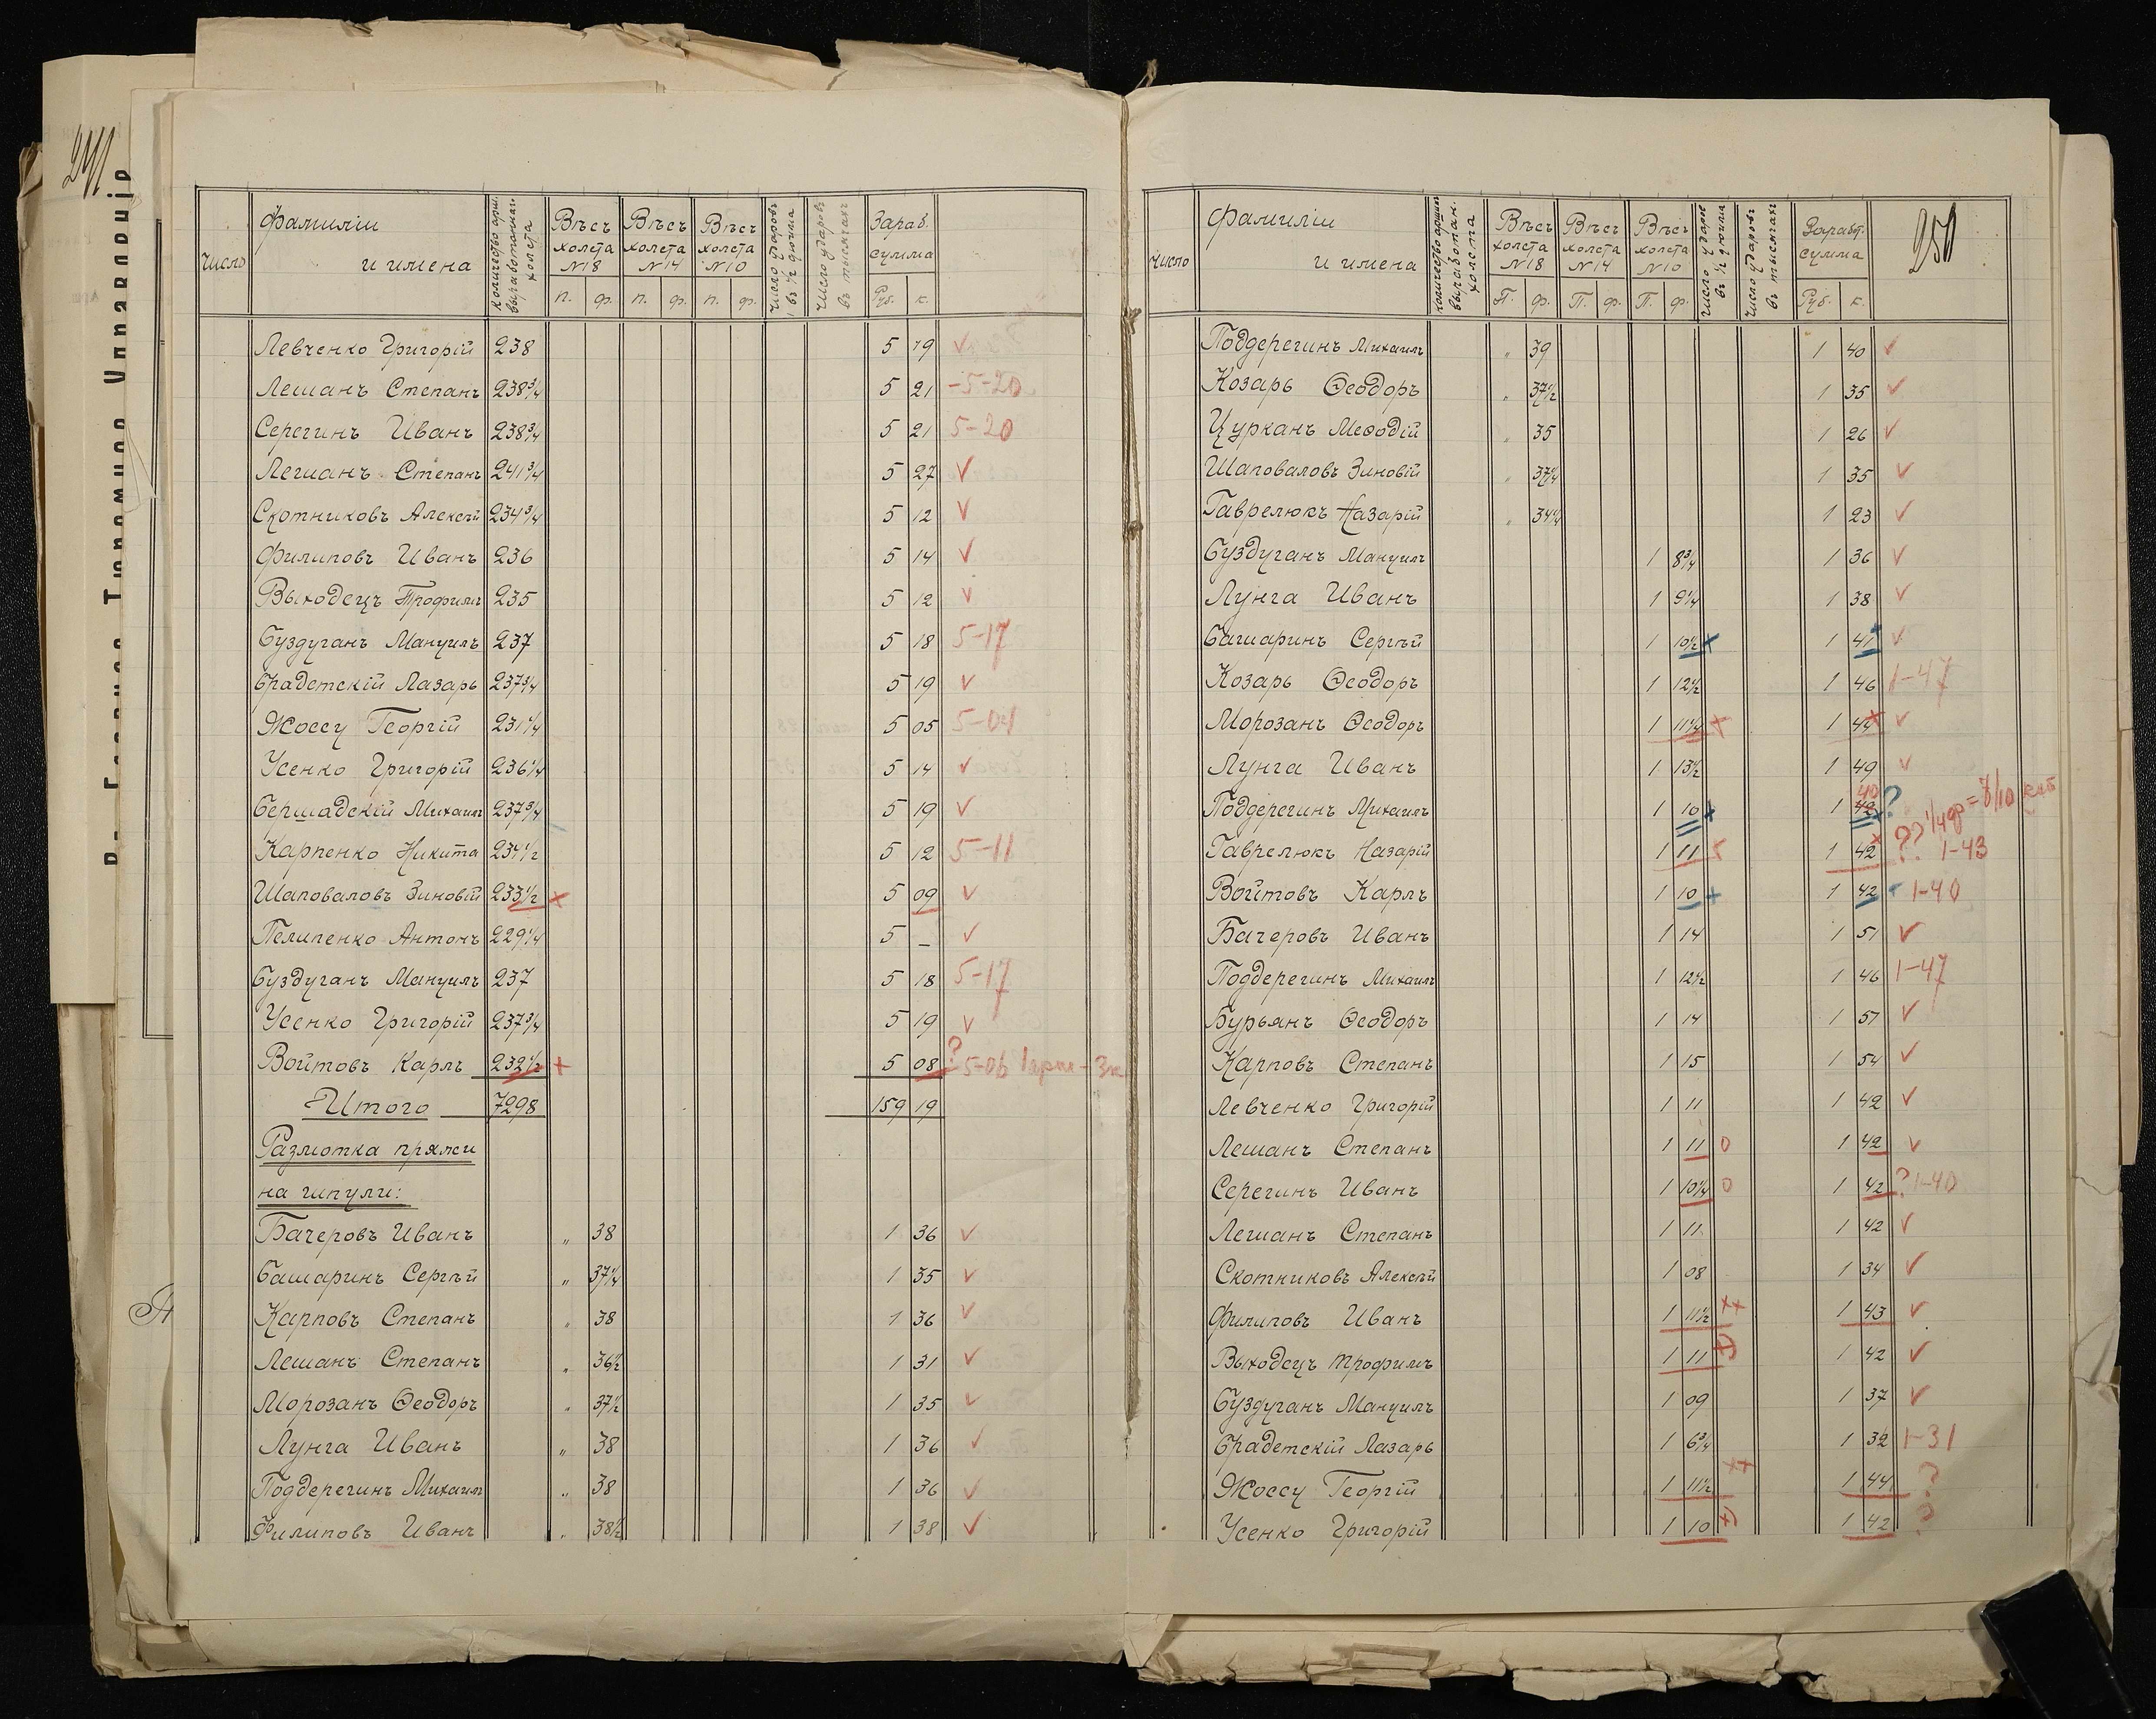 241
Тюремное Управленіе
число
Фамиліи
и имена
Количество арш.
выработаннаг.
холста
Вѣсъ холста №18
Вѣсъ холста №14
Вѣсъ холста №10
п. ф. п. ф. п. ф.
Число ударовъ
въ 1/2 дюйма
Число ударовъ
въ тысячахъ
Зараб. сумма
Руб. к.
Левченко Григорій 238 5 19 ✓
Лешанъ Степанъ 238 3/4 5 21 -5-20
Серегинъ Иванъ 238 3/4 5 21 5-20
Легианъ Степанъ 241 3/4 5 27 ✓
Скотниковъ Алексѣй 234 3/4 5 12 ✓
Филиповъ Иванъ 236 5 14 ✓
Выходецъ Трофимъ 235 5 12 ✓
Буздуганъ Мануилъ 237 5 18 5-17
Градетскій Лазарь 237 3/4 5 19 ✓
Жоссу Георгій 231 1/4 5 05 5-04
Усенко Григорій 236 1/4 5 14 ✓
Бершадскій Михаилъ 237 3/4 5 19 ✓
Карпенко Никита 234 1/2 5 12 5-11
Шаповаловъ Зиновій 233 1/2 × 5 09 ✓
Пелипенко Антонъ 229 1/4 5 _ ✓
Буздуганъ Мануилъ 237 5 18 5-17
Усенко Григорій 237 3/4 5 19 ✓
Войтовъ Карлъ 232 1/2 + 5 08 ? 5-06 1 арш - 3к
Итого 7298 159 19
Размотка пряжи
на шпули:
Бачеровъ Иванъ " 38 1 36 ✓
Башаринъ Сергѣй " 37 1/4 1 35 ✓
Карповъ Степанъ " 38 1 36 ✓
Лешанъ Степанъ " 36 1/2 1 31 ✓
Морозанъ Ѳеодоръ " 37 1/2 1 35 ✓
Лунга Иванъ " 38 1 36 ✓
Поддерегинъ Михаилъ " 38 1 36 ✓
Филиповъ Иванъ " 38 1/2 1 38 ✓
число
Фамиліи
и имена
Количество аршин
выработан.
холста
Вѣсъ холста №18
Вѣсъ холста №14
Вѣсъ холста №10
П. ф. П. ф. П. ф.
Число ударов
въ 1/2 дюйма
Число ударовъ
въ тысячахъ
Заработ. сумма
Руб. к.
250
Поддерегинъ Михаилъ " 39 1 40 ✓
Козарь Ѳеодоръ " 37 1/2 1 35 ✓
Цурканъ Меѳодій " 35 1 26 ✓
Шаповаловъ Зиновій " 37 1/4 1 35 ✓
Гаврелюкъ Назарій " 34 1/4 1 23 ✓
Буздуганъ Мануилъ 1 8 3/4 1 36 ✓
Лунга Иванъ 1 9 1/4 1 38 ✓
Башаринъ Сергѣй 1 10 1/2 × 1 41 ✓
Козарь Ѳеодоръ 1 12 1/2 1 46 1-47
Морозанъ Ѳеодоръ 1 11 1/2 + 1 44 × ✓
Лунга Иванъ 1 13 1/2 1 49 ✓
Поддерегинъ Михаилъ 1 10 + 1 42 40 ? 1/4 ф = 7/10 коп
Гаврелюкъ Назарій 1 11 1 42 × ?? 1-43
Войтовъ Карлъ 1 10 + 1 42 + 1-40
Бачеровъ Иванъ 1 14 1 51 ✓
Поддерегинъ Михаилъ 1 12 1/2 1 46 1-47
Бурьянъ Ѳеодоръ 1 14 1 51 ✓
Карповъ Степанъ 1 15 1 54 ✓
Левченко Григорій 1 11 1 42 ✓
Лешанъ Степанъ 1 11 0 1 42 ✓
Серегинъ Иванъ 1 10 1/4 0 1 42 ? 1-40
Легианъ Степанъ 1 11 1 42 ✓
Скотниковъ Алексѣй 1 08 1 34 ✓
Филиповъ Иванъ 1 11 1/2 ×+ 1 43 ✓
Выходецъ Трофимъ 1 11 1 42 ✓
Буздуганъ Мануилъ 1 09 1 37 ✓
Градетскій Лазарь 1 6 3/4 1 32 1-31
Жоссу Георгій 1 11 1/2 ×+ 1 44 ?
Усенко Григорій 1 10 1 42 ?